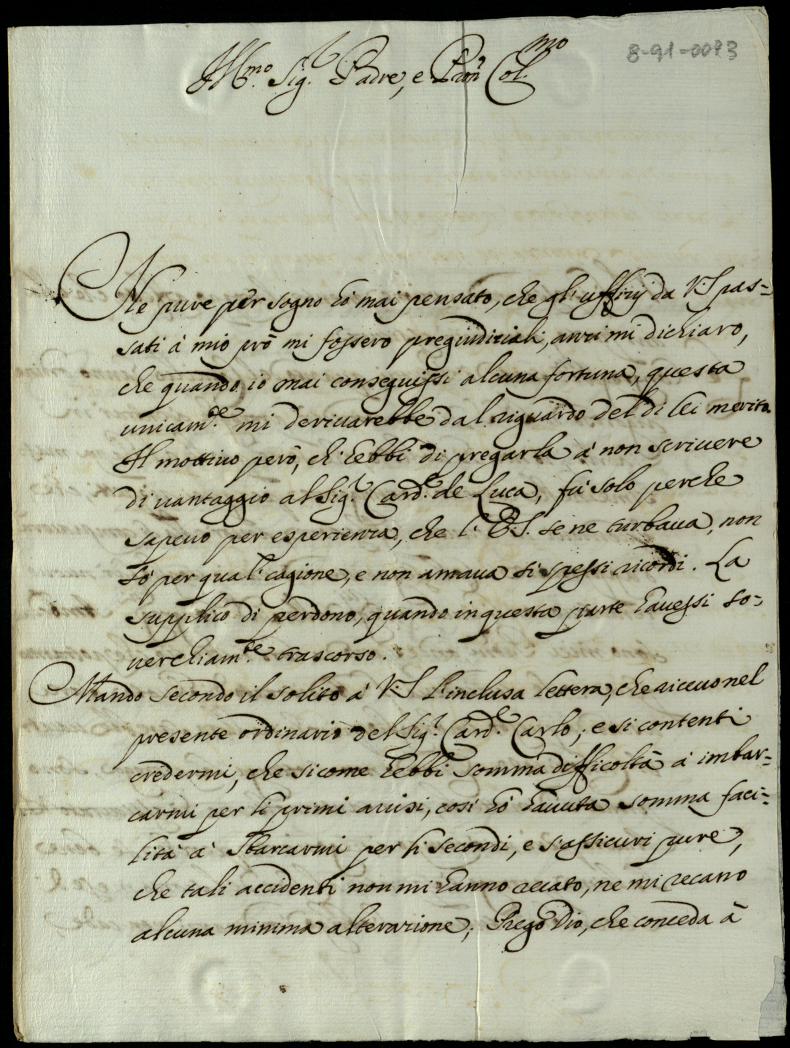 8-91-0093
Ill.mo Sig.r Padre, e Pan.e Col.mo
Ne pure per sogno hò mai pensato, che gl'uffizij da V.S. pas-
sati à mio prò mi fossero pregiudiziali, anzi mi dichiaro,
che quando io mai conseguissi alcuna fortuna, questa
unicam.te mi derivarebbe dal riguardo del di lei merito.
Il mottivo però, ch'hebbi di pregarla à non scrivere
di vantaggio al Sig.r Card.le de Luca, fù solo perche
sapevo per esperienza, che l'E.S. se ne turbava, non
sò per qual cagione, e non amava sì spessi ricordi. La
supplico di perdono, quando in questa parte havessi so-
verchiam.te trascorso.
Mando secondo il solito à V.S. l'inclusa lettera, che ricevo nel
presente ordinario del Sig.r Card.le Carlo, e si contenti
credermi, che sicome hebbi somma difficoltà à imbar-
carmi per li primi avisi, così hò havuta somma faci-
lità à sbarcarmi per li secondi, e s'assicuri pure,
che tali accidenti non mi hanno recato, ne mi recano
alcuna minima alterazione; Prego Dio, che conceda à